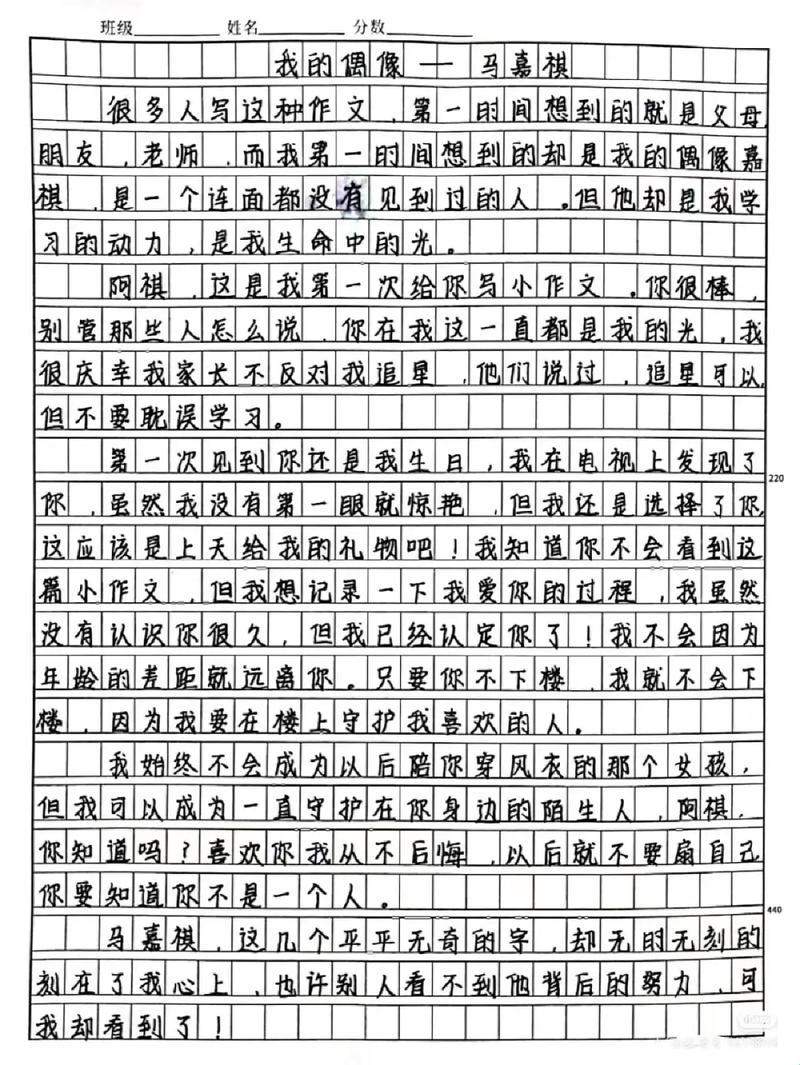 班级 姓名 分数
我的偶像 — 马嘉祺
很多人写这种作文，第一时间想到的就是父母，
朋友，老师，而我第一时间想到的却是我的偶像嘉
祺，是一个连面都没有见到过的人。但他却是我学
习的动力，是我生命中的光。
阿祺，这是我第一次给你写小作文。你很棒，
别管那些人怎么说，你在我这一直都是我的光。我
很庆幸我家长不反对我追星，他们说过，追星可以，
但不要耽误学习。
第一次见到你还是我生日，我在电视上发现了
你，虽然我没有第一眼就惊艳，但我还是选择了你，
220
这应该是上天给我的礼物吧！我知道你不会看到这
篇小作文，但我想记录一下我爱你的过程，我虽然
没有认识你很久，但我已经认定你了！我不会因为
年龄的差距就远离你。只要你不下楼，我就不会下
楼，因为我要在楼上守护我喜欢的人。
我始终不会成为以后陪你穿风衣的那个女孩，
但我可以成为一直守护在你身边的陌生人，阿祺，
你知道吗？喜欢你我从不后悔，以后就不要扇自己
你要知道你不是一个人。
440
马嘉祺，这几个平平无奇的字，却无时无刻的
刻在了我心上，也许别人看不到他背后的努力，可
我却看到了！